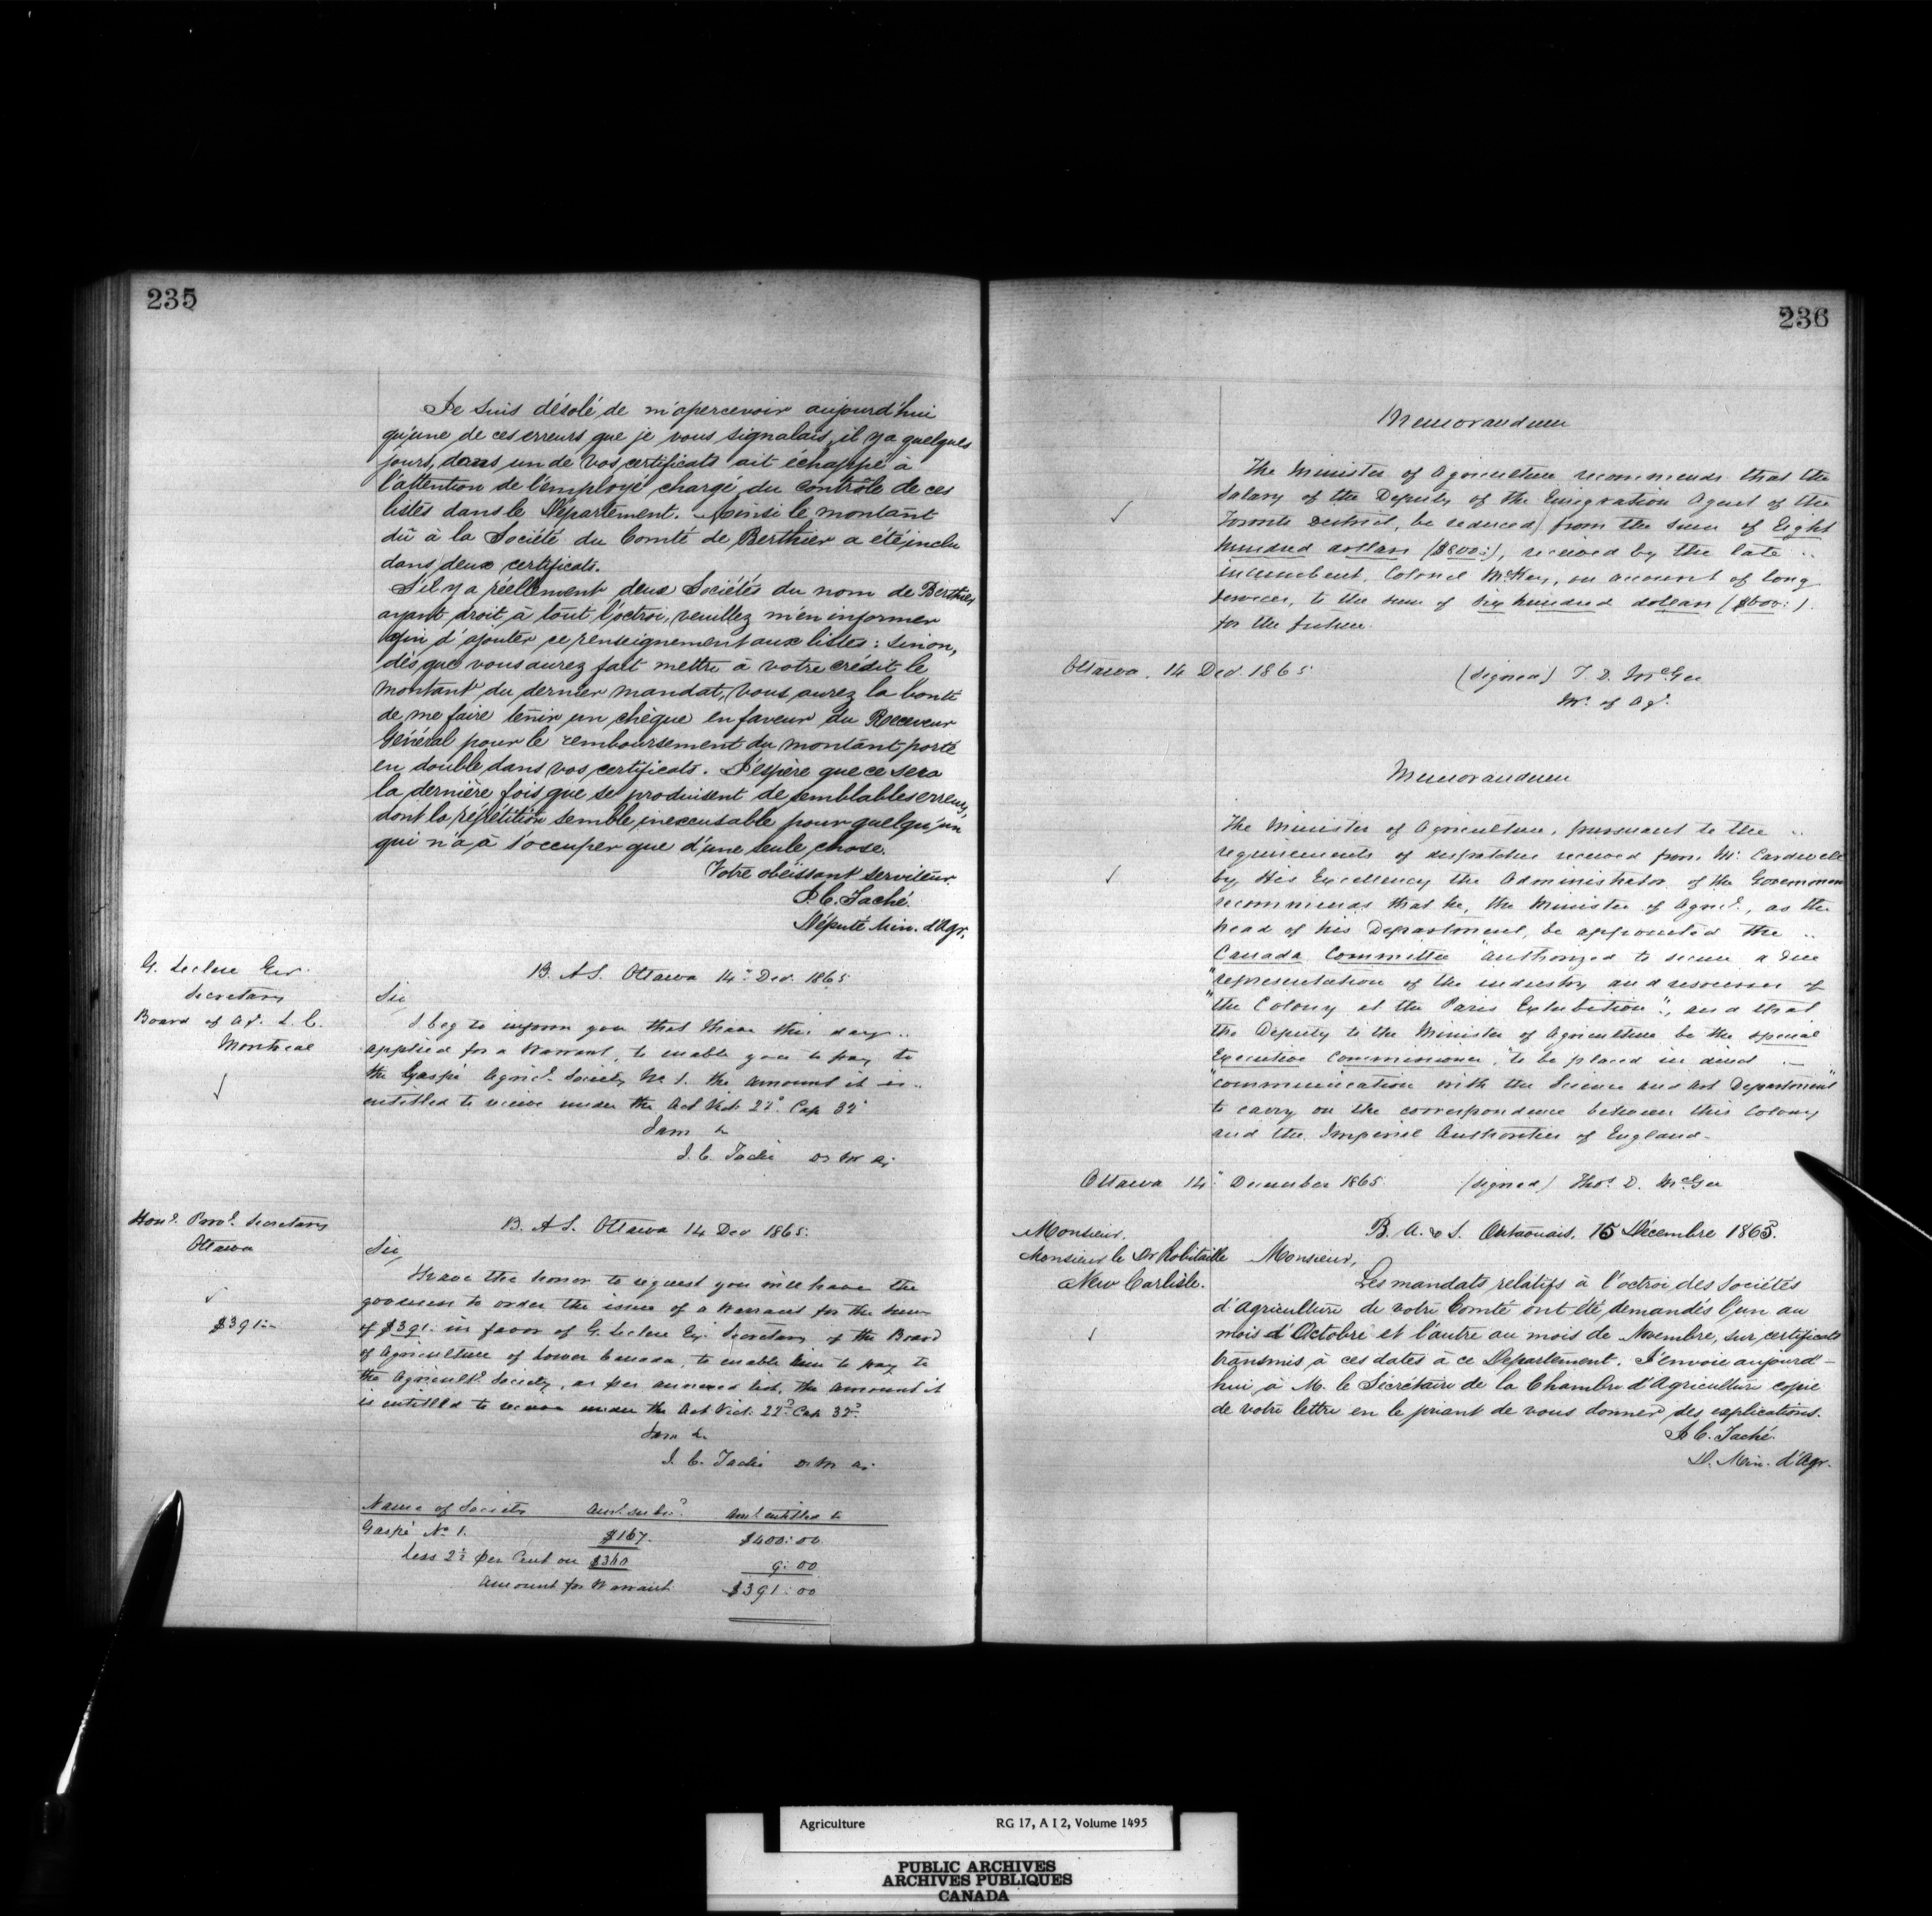 235
Je suis désolé de m'apercevoir aujourd'hui
qu'une de ces erreurs que je vous signalais, il y a quelques
jours, dans un de vos certificats ait échappé à
l'attention de l'employé chargé du contrôle de ces
listes dans le Département. Ainsi le montant
dû à la Société du Comté de Berthier a été inclu
dans deux certificats.
S'il y a réellement deux Sociétés du nom de Berthier
ayant droit à tout l'octroi, veuillez m'en informer
afin d'ajouter ce renseignement aux listes: sinon,
dès que vous aurez fait mettre à votre crédit le
montant du dernier mandat, vous aurez la bonté
de me faire tenir un chèque en faveur du Receveur
Général pour le remboursement du montant porté
en double dans vos certificats. J'espère que ce sera
la dernière fois que se produisent de semblables erreurs,
dont la répétition semble inexcusable pour quelqu'un
qui n'a à s'occuper que d'une seule chose.
Votre obéissant serviteur.
J. C. Taché.
Député Min. d'Agr.
G. Leclere Esr.
Secretary
Board of Ag. L. C.
Montreal
B. A S. Ottawa 14" Dec. 1865
Sir
I beg to inform you that I have this day ..
applied for a Warrant, to enable you to pay to
the Gaspé Agricl. Society No 1. the amount it is ..
entitled to receive under the Act Vict. 22° Cap 32°
I am &
J. C. Taché D M A.
Honl. Provl. Secretary
Ottawa
$391:--
B. A S. Ottawa 14 Dec 1865.
Sir,
I have the honor to request you will have the
goodness to order the issue of a Warrant for the sum
of $391: in favor of G. Leclere Esr. Secretary of the Board
of Agriculture of Lower Canada, to enable him to pay to
the Agricultl. Society, as per annexed list, the amount it
is entitled to receive under the Act Vict. 22° Cap 32°.
I am &.
J. C. Taché D. M A.
Name of Society Amt. subd. Amt. entitled to
Gaspé No 1. $167. $400:00
less 2½ per Cent on $360 9:00
Amount for Warrant $391:00
236
Memorandum
The Minister of Agriculture recommends that the
Salary of the Deputy of the Emigration Agent of the
Toronto District, be reduced from the sum of Eight
hundred dollars ($800:), received by the late ..
incumbent, Colonel McKay, on account of long
services, to the sum of six hundred dollars ($600:).
for the future.
Ottawa, 14 Dec. 1865 (signed) T. D. McGee
Mr. of Ag.
Memorandum
The Minister of Agriculture, pursuant to the ..
requirements of despatches received from Mr. Cardwell
by His Excellency the Administrator of the Government
recommends that he, the Minister of Agricl., as the
head of his Department, be appointed the ..
Canada Committee "authorized to secure a due
"representation of the industry and resources of
"the Colony at the Paris Exhibition", and that
the Deputy to the Minister of Agriculture be the special
Executive Commissioner, "to be placed in direct —
"communication with the Science and Art Department"
to carry on the correspondence between this Colony
and the Imperial Authorities of England.
Ottawa 14" December 1865 (signed) Thos. D. McGee
Monsieur.
Monsieur le Dr Robitaille
New Carlisle.
B. A. & S. Outaouais. 15 Décembre 1865.
Monsieur,
Les mandats relatifs à l'octroi des sociétés
d'Agriculture de votre Comté ont été demandés l'un au
mois d'Octobre et l'autre au mois de Novembre, sur certificats
transmis à ces dates à ce Département. J'envoie aujourd'-
hui à M. le Secrétaire de la Chambre d'Agriculture copie
de votre lettre en le priant de vous donner des explications.
J. C. Taché.
D. Min. d'Agr.
Agriculture RG 17, A I 2, Volume 1495
PUBLIC ARCHIVES
ARCHIVES PUBLIQUES
CANADA